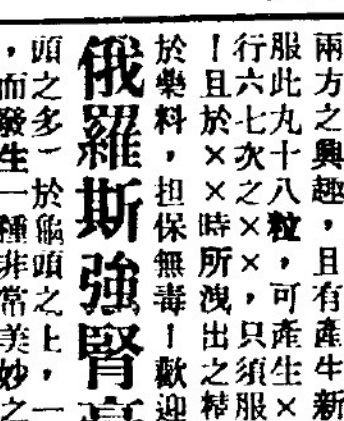 兩方之興趣，且有產生新
服此丸十八粒，可產生×
行六七次之××，只須服
！且於××時所洩出之精
於藥料，担保無毒！歡迎
俄羅斯強腎
頭之多一於龜頭之上，一
，而發生一種非常美妙之